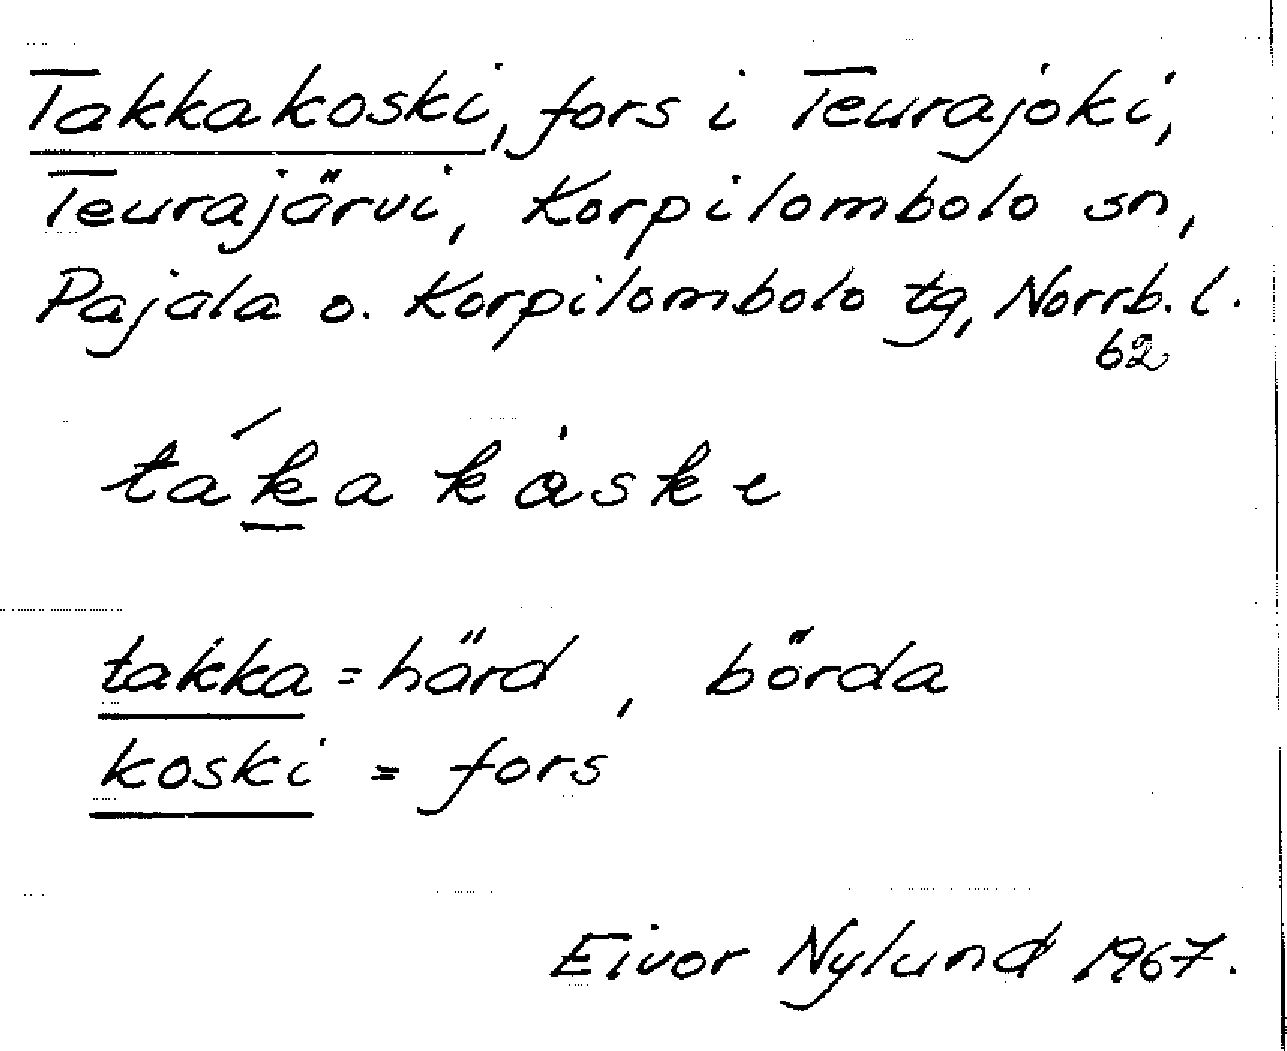 Takkakoski, fors i Teurajoki,
Teurajärvi, Korpilombolo sn,
Pajala o. Korpilombolo tg, Norrb. l.
62
táka kåske
takka = härd, börda
koski = fors
Eivor Nylund 1967.